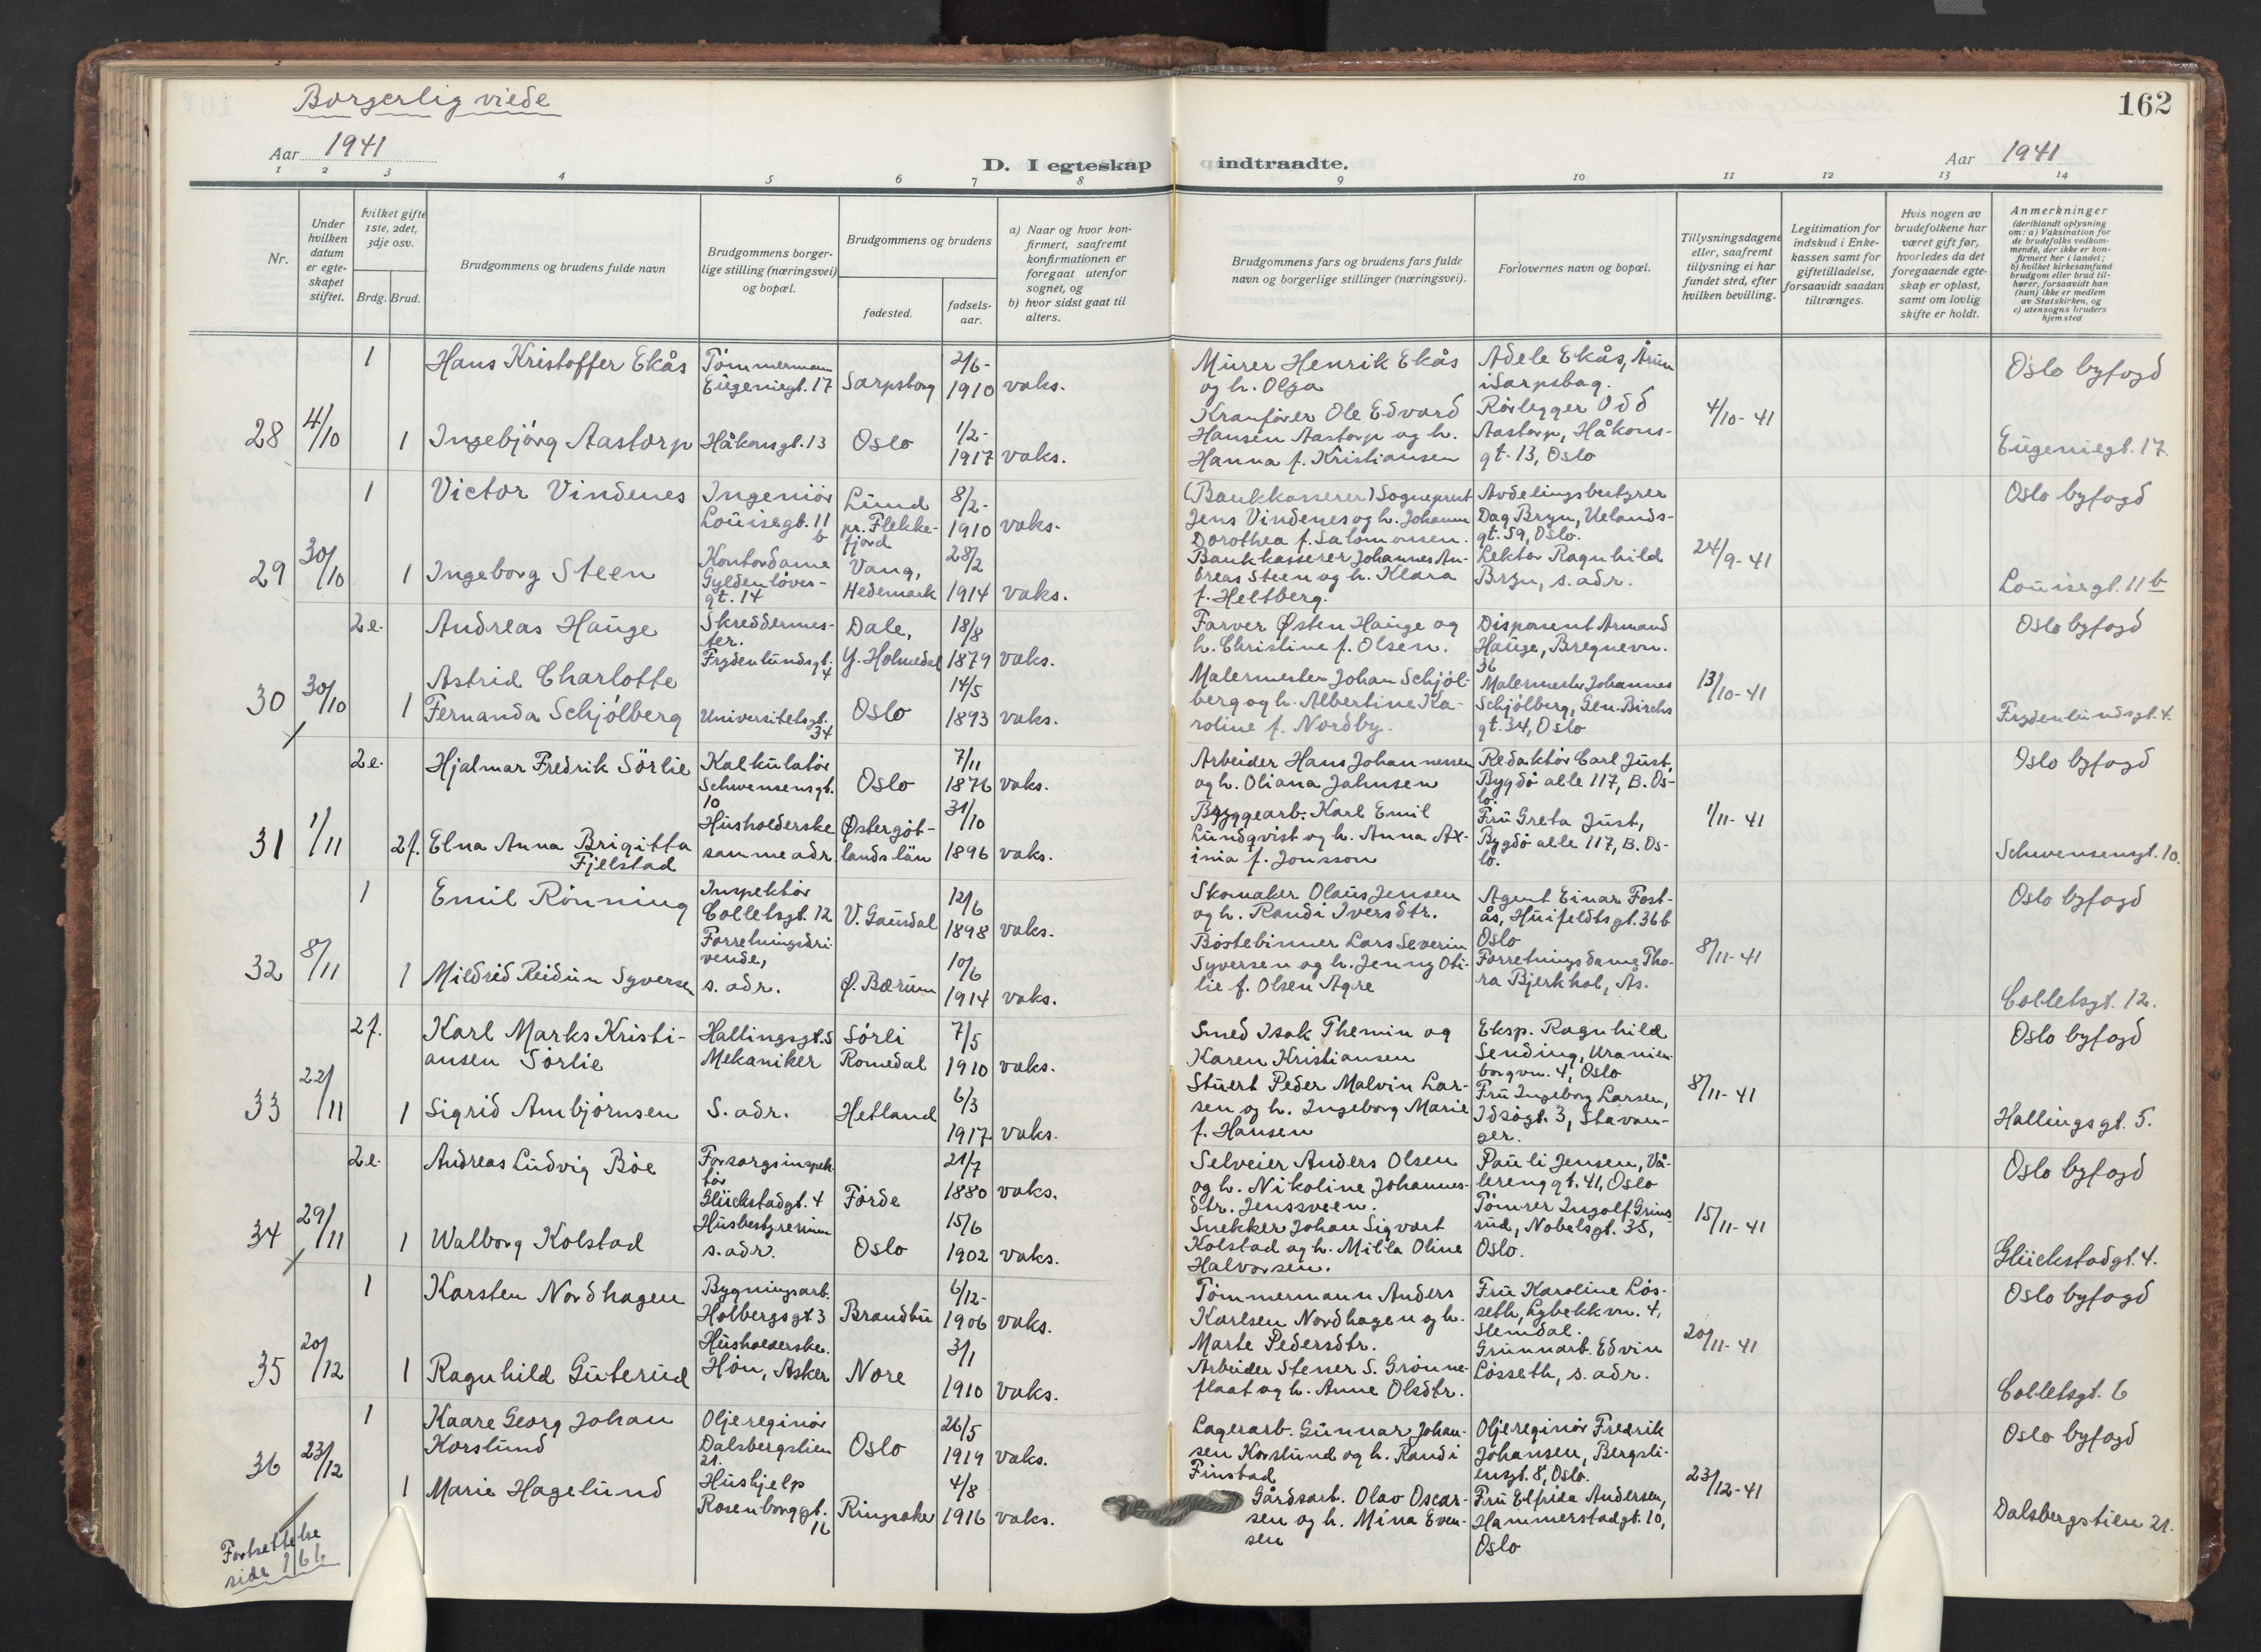 Borgerlig viede
162
Aar 1941
D. I egteskap indtraadte.
Aar 1941
1 2 3 4 5 6 7 8 9 10 11 12 13 14
Nr.
Under
hvilken
datum
er egte-
skapet
stiftet.
hvilket gifte
1ste, 2det,
3dje osv.
Brdg. Brud.
Brudgommens og brudens fulde navn
Brudgommens borger-
lige stilling (næringsvei)
og bopæl.
Brudgommens og brudens
fødested.
fødsels-
aar.
a) Naar og hvor kon-
firmert, saafremt
konfirmationen er
foregaat utenfor
sognet, og
b) hvor sidst gaat til
alters.
Brudgommens fars og brudens fars fulde
navn og borgerlige stillinger (næringsvei).
Forlovernes navn og bopæl.
Tillysningsdagene
eller, saafremt
tillysning ei har
fundet sted, efter
hvilken bevilling.
Legitimation for
indskud i Enke-
kassen samt for
giftetilladelse,
forsaavidt saadan
tiltrænges.
Hvis nogen av
brudefolkene har
været gift før,
hvorledes da det
foregaaende egte-
skap er opløst,
samt om lovlig
skifte er holdt.
Anmerkninger
(deriblandt oplysning
om: a) Vaksination for
de brudefolks vedkom-
mende, der ikke er kon-
firmert her i landet;
b) hvilket kirkesamfund
brudgom eller brud til-
hører, forsaavidt han
(hun) ikke er medlem
av Statskirken, og
c) utensogns bruders
hjemsted
28
4/10
1
Hans Kristoffer Ekås
Tömmermann
Eugeniegt. 17
Sarpsborg
2/6-
1910
vaks.
Murer Henrik Ekås
og h. Olga
Adele Ekås, Årum
i Sarpsbog.
Oslo byfogd
1
Ingebjörg Aastorp
Håkonsgt. 13
Oslo
1/2-
1917
vaks.
Kranförer Ole Edvard
Hansen Aastorp og h.
Hanna f. Kristiansen
Rörlegger Odd
Aastorp, Håkons-
gt. 13, Oslo
4/10-41
Eugeniegt. 17.
29
30/10
1
Victor Vindenes
Ingeniör
Louisegt. 11
b
Lund
pr. Flekke-
fjord
8/2-
1910
vaks.
(Bankkasserer) Sogneprest
Jens Vindenes og h. Johanne
Dorothea f. Salomonsen.
Avdelingsbestyrer
Dag Bryn, Uelands-
gt. 59, Oslo.
Oslo byfogd
1
Ingeborg Steen
Kontordame
Gyldenlöves-
gt. 14
Vang,
Hedemark
28/2
1914
vaks.
Bankkasserer Johannes An-
dreas Steen og h. Klara
f. Heltberg.
Lektor Ragnhild
Bryn, s. adr.
24/9-41
Louisegt. 11 b
30
30/10
2e.
Andreas Hauge
Skreddermes-
ter.
Frydenlundsgt.
4
Dale,
Y. Holmedal
18/8
1879
vaks.
Farver Østen Hauge og
h. Christine f. Olsen.
Disponent Armand
Hauge, Bregnevn.
36
Oslo byfogd
1
Astrid Charlotte
Fernanda Schjölberg
Universitetsgt.
34
Oslo
14/5
1893
vaks.
Malermester Johan Schjöl-
berg og h. Albertine Ka-
roline f. Nordby.
Malermester Johannes
Schjölberg, Gen. Birchs
gt. 34, Oslo
13/10-41
Frydenlundsgt. 4.
31
1/11
2e.
Hjalmar Fredrik Sörlie
Kalkulatör
Schwensensgt.
10
Oslo
7/11
1876
vaks.
Arbeider Hans Johannessen
og h. Oliana Jahnsen
Redaktör Carl Just,
Bygdö alle 117, B. Os-
lo.
Oslo byfogd
2f.
Elna Anna Brigitta
Fjelstad
Husholderske
samme adr.
Østergöt-
lands län
31/10
1896
vaks.
Bryggearb. Karl Emil
Lundqvist og h. Anna Ax-
inia f. Jonsson
Fru Greta Just,
Bygdö alle 117, B. Os-
lo.
1/11-41
Schwensensgt. 10.
32
8/11
1
Emil Rönning
Inspektör
Colletsgt. 12
V. Gausdal
12/6
1898
vaks.
Skomaker Olaus Jensen
og h. Randi Iversdtr.
Agent Einar Fost-
ås, Huitfeldtsgt. 36 b
Oslo
Oslo byfogd
1
Mildrid Reidun Syversen
Forretningsdri-
vende,
s. adr.
Ø. Bærum
10/6
1914
vaks.
Böstebinner Lars Severin
Syversen og h. Jenny Oti-
lie f. Olsen Agre
Forretningsdame Tho-
ra Bjerkhol, Ås.
8/11-41
Colletsgt. 12.
33
22/11
2f.
Karl Marks Kristi-
ansen Sörlie
Hallingsgt. 5
Mekaniker
Sörli
Romedal
7/5
1910
vaks.
Smed Isak Themin og
Karen Kristiansen
Eksp. Ragnhild
Sending, Uranien-
borgvn. 4, Oslo
Oslo byfogd
1
Sigrid Ambjörnsen
S. adr.
Hetland
6/3
1917
vaks.
Stuert Peder Malvin Lar-
sen og h. Ingeborg Marie
f. Hansen
Fru Ingeborg Larsen,
Idsögt. 3, Stavan-
ger.
8/11-41
Hallingsgt. 5.
34
29/11
2e.
Andreas Ludvig Böe
Forsorgsinspek-
tör
Glückstadgt. 4
Förde
21/7
1880
vaks.
Selveier Anders Olsen
og h. Nikoline Johannes-
dtr. Jenssveen.
Pauli Jensen, Vå-
lerenggt. 41, Oslo
Oslo byfogd
1
Walborg Kolstad
Husbestyrerinne
s. adr.
Oslo
15/6
1902
vaks.
Snekker Johan Sigvart
Kolstad og h. Milla Oline
Halvorsen.
Tömrer Ingolf Grins-
rud, Nobelsgt. 35,
Oslo.
15/11-41
Glückstadgt. 4.
35
20/12
1
Karsten Nordhagen
Bygningsarb.
Holbergsgt. 3
Brandbu
6/12-
1906
vaks.
Tömmermann Anders
Karlsen Nordhagen og h.
Marte Pedersdtr.
Fru Karoline Lös-
seth, Lybekkvn. 4,
Slemdal.
Oslo byfogd
1
Ragnhild Guterud
Husholderske.
Hön, Asker
Nore
3/1
1910
vaks.
Arbeider Stener S. Grönne-
flaat og h. Anne Olsdtr.
Grunnarb. Edvin
Lösseth, s. adr.
20/11-41
Colletsgt. 6
36
23/12
1
Kaare Georg Johan
Korslund
Oljereginör
Dalsbergstien
21.
Oslo
26/5
1919
vaks.
Lagerarb. Gunnar Johan-
sen Korslund og h. Randi
Finstad
Oljereginör Fredrik
Johansen, Bergsli-
ensgt. 8, Oslo.
Oslo byfogd
1
Marie Hagelund
Hushjelp
Rosenborggt.
16
Ringsaker
4/8
1916
vaks.
Gårdsarb. Olav Oscar-
sen og h. Mina Even-
sen
Fru Elfrida Andersen,
Hammerstadgt. 10,
Oslo
23/12-41
Dalsbergstien 21.
Fortsettelse
side 166